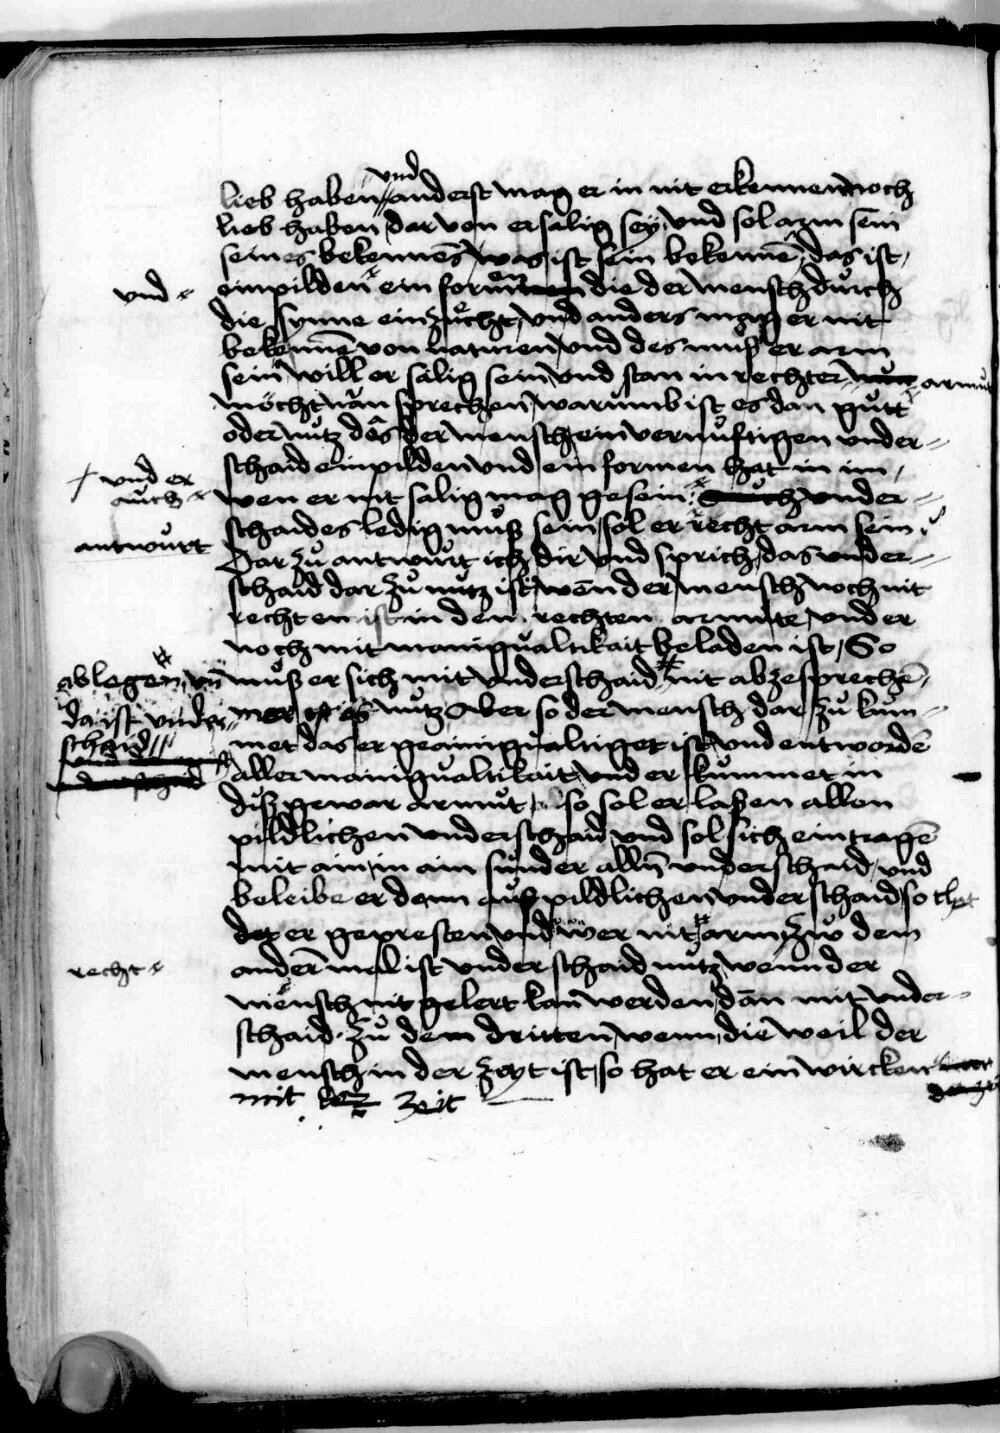 und
lieb haben / anderst mag er in nit erkennen noch
lieb haben / dar von er sälig sey / und sol arm sein
seines bekennes / was ist sein bekennē / das ist /
und
einpilden ein formen die der mensch durch
die synne einzücht / und anders mag er nit
bekennē von naturen / und des muß er arm
sein / will er sälig sein / und stan in rechter armůt
möcht man sprechen / warumb ist es dan gůtt
oder nutz dês der mensch ein vernuftigen under-
schaid einpilden und ein formen hat in im /
und er
auch
wen er nit salig mag gesein under-
schaides ledig můß sein / sol er recht arm sein
antwurt
Dar zů antwurt ich dir und sprich / das under-
schaid dar zů nutz ist / wēn der mensch noch nit
rechten ist in den rechten armute / und er
noch mit manigualtikait beladen ist / So
ablegen / uñ
můß er sich mit underschaid nit abzesprechē /
da ist under
schaid
mer nutz Aber so der mensch dar zů kum-
met das er geainigualtiget ist / und entwordē
aller manigualtikait / und er kummet in
diß gewar armůt / so sol er laßen allen
pildlichen underschaid / und sol sich eintragē
mit ain / in ain sunder alln̄ underschaid / und
beleibe er dann auf pildlichen underschaid / so thet
er gepresten und wer nit arm / Zů dem
recht
andern mal ist underschaid nutz / wenn der
mensch nit gelert kan werden / dān mit under-
schaid. Zů dem dritten / wenn die weil der
mensch in der zeyt ist / so hat er ein wircken
mit der zeit